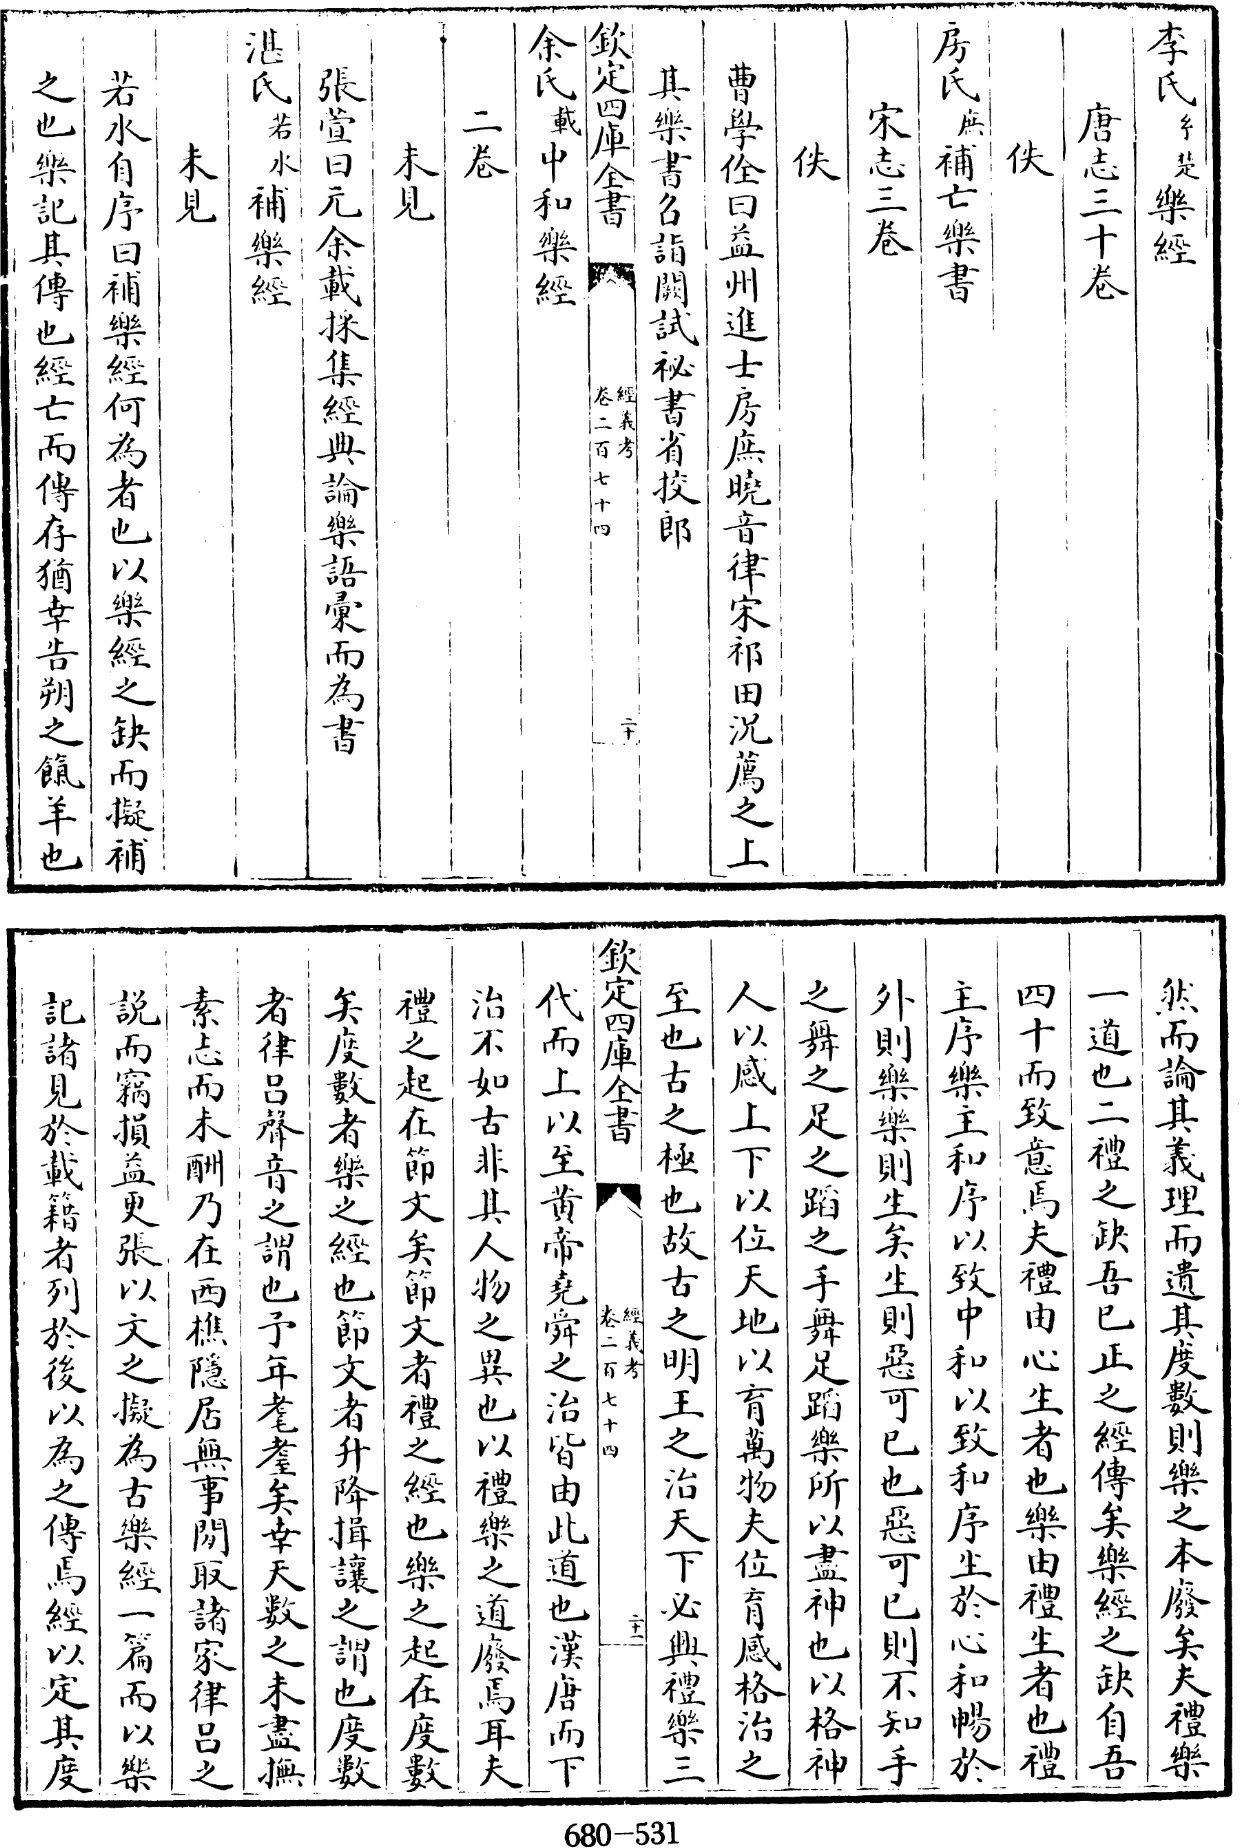 李氏玄楚樂經
唐志三十卷
佚
房氏庶補亡樂書
宋志三卷
佚
曹學佺曰益州進士房庶曉音律宋祁田況薦之上
其樂書名詣闕試祕書省挍郎
欽定四庫全書
經義考
卷二百七十四
二十
余氏載中和樂經
二卷
未見
張萱曰元余載採集經典論樂語彚而為書
湛氏若水補樂經
未見
若水自序曰補樂經何為者也以樂經之缺而擬補
之也樂記其傳也經亡而傳存猶幸告朔之餼羊也
然而論其義理而遺其度數則樂之本廢矣夫禮樂
一道也二禮之缺吾已正之經傳矣樂經之缺自吾
四十而致意焉夫禮由心生者也樂由禮生者也禮
主序樂主和序以致中和以致和序生於心和暢於
外則樂樂則生矣生則惡可已也惡可已則不知手
之舞之足之蹈之手舞足蹈樂所以盡神也以格神
人以感上下以位天地以育萬物夫位育感格治之
至也古之極也故古之明王之治天下必興禮樂三
欽定四庫全書
經義考
卷二百七十四
二十一
代而上以至黃帝堯舜之治皆由此道也漢唐而下
治不如古非其人物之異也以禮樂之道廢焉耳夫
禮之起在節文矣節文者禮之經也樂之起在度數
矣度數者樂之經也節文者升降揖讓之謂也度數
者律呂聲音之謂也予年耄耋矣幸天數之未盡撫
素志而未酬乃在西樵隱居無事閒取諸家律呂之
說而竊損益更張以文之擬為古樂經一篇而以樂
記諸見於載籍者列於後以為之傳焉經以定其度
680-531